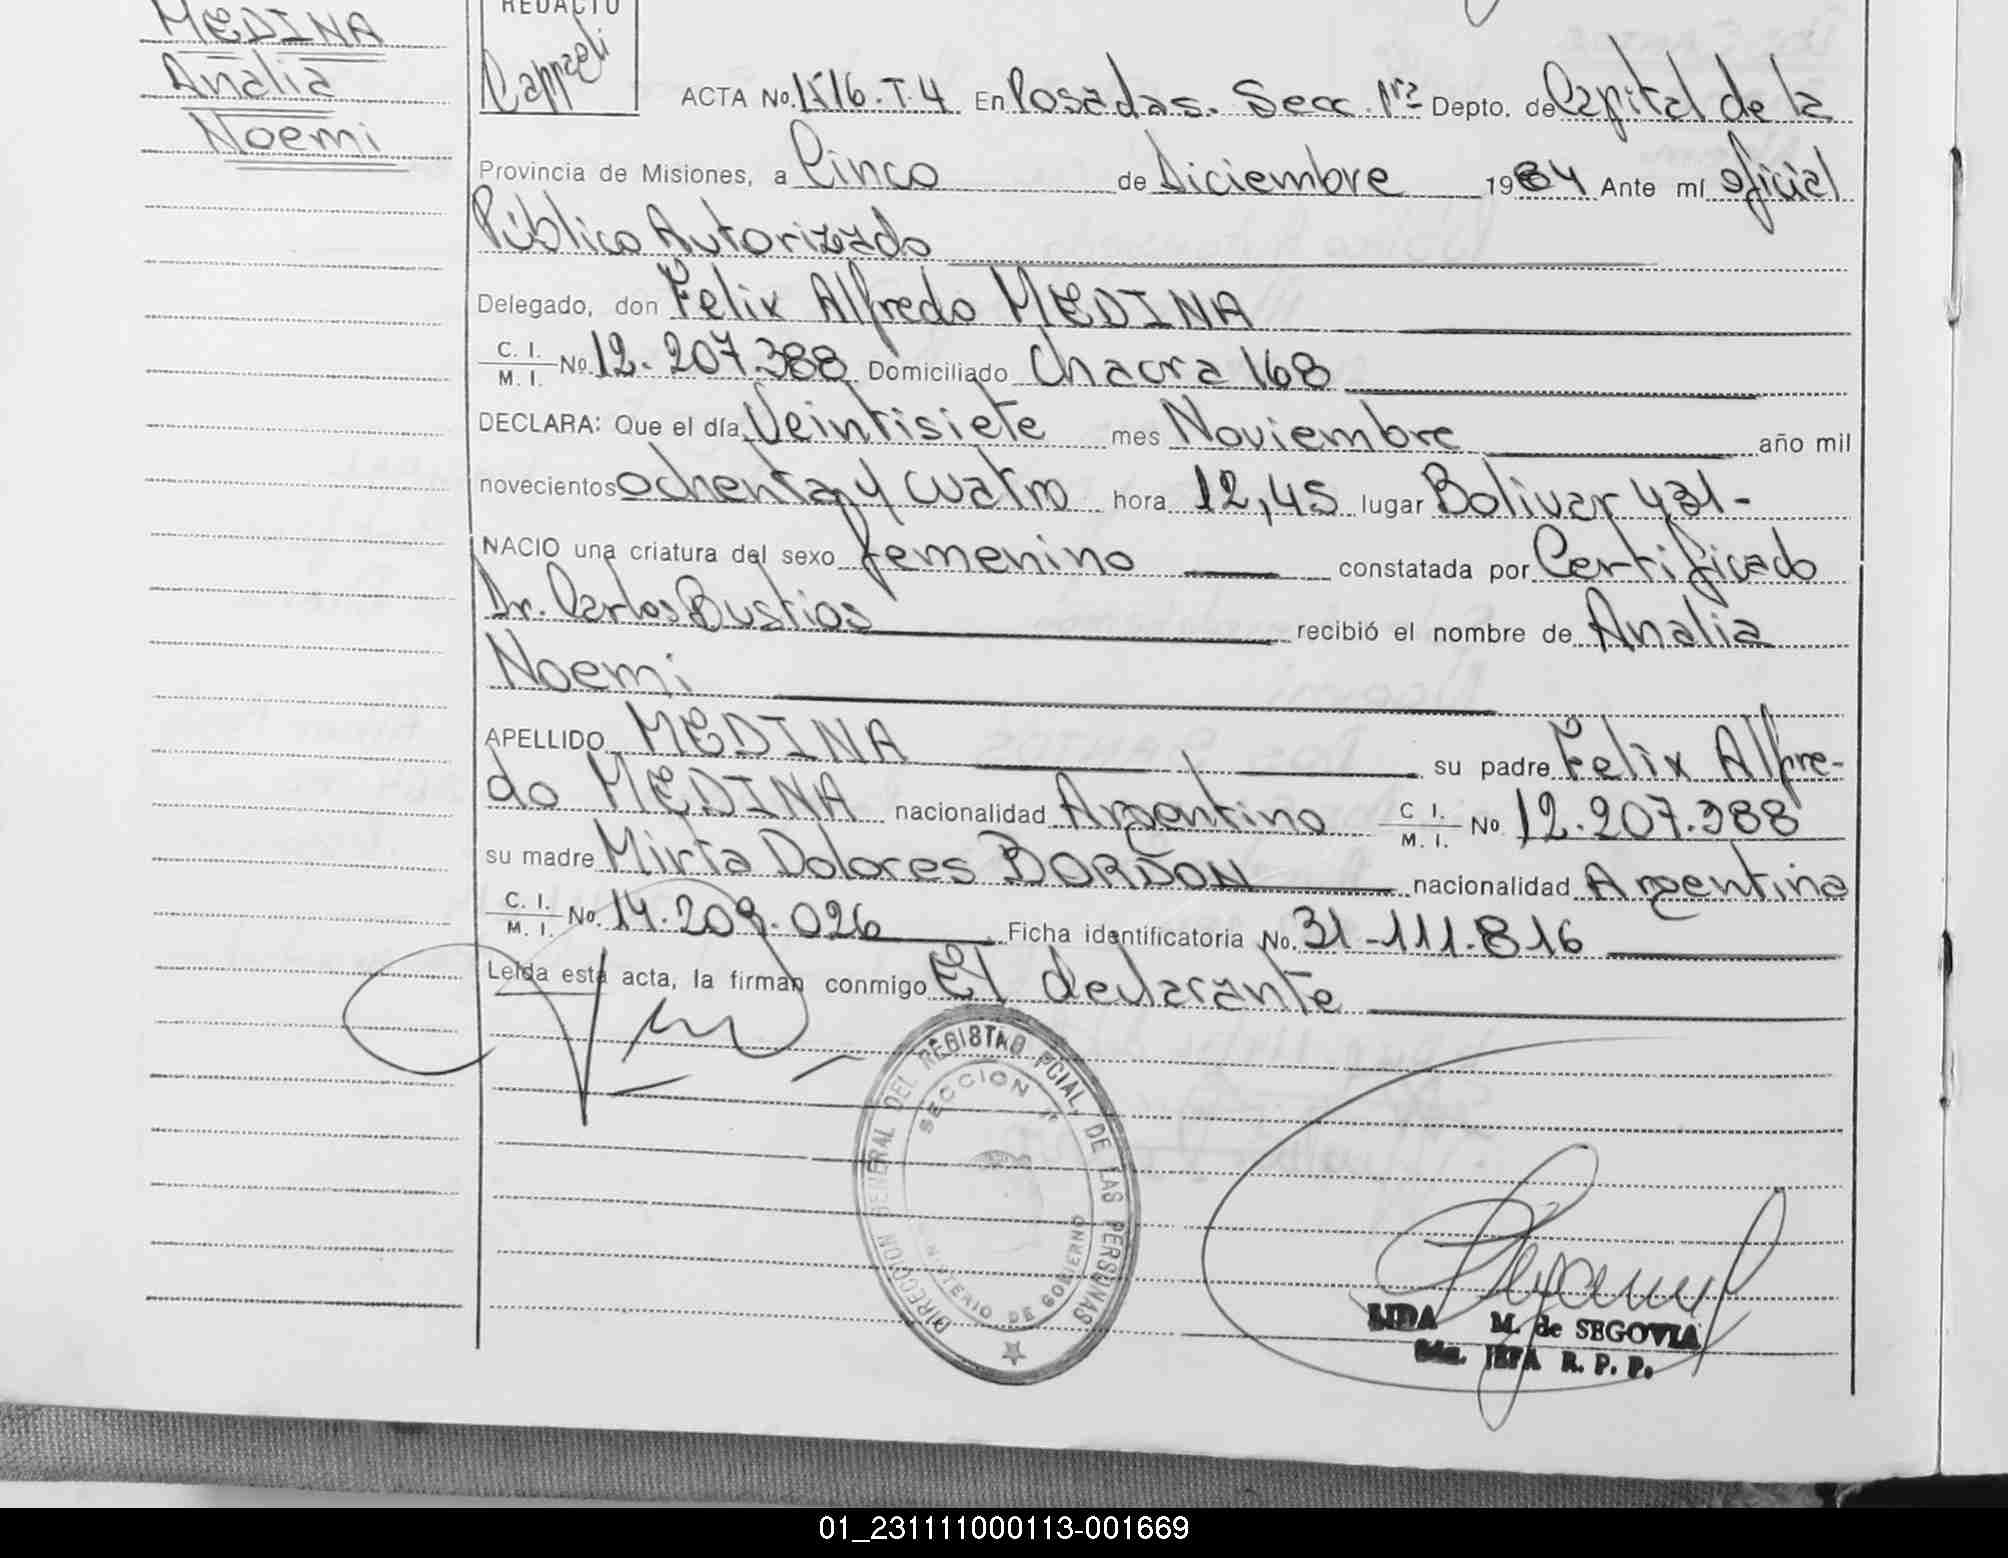 MEDINA
Analia
Noemi
REDACTO
Cappeli
ACTA No. 1516-T.4 En Posadas. Secc. 1ra Depto. de Capital de la
Provincia de Misiones, a Cinco de Diciembre 1984 Ante mí oficial
Público Autorizado
Delegado, don Felix Alfredo MEDINA
C. I.
M. I. No. 12.207.388 Domiciliado Chacra 168
DECLARA: Que el día Veintisiete mes Noviembre año mil
novecientos ochenta y cuatro hora 12,45 lugar Bolivar 431-
NACIO una criatura del sexo femenino constatada por Certificado
Dr. Carlos Bustios recibió el nombre de Analia
Noemi
APELLIDO MEDINA su padre Felix Alfre-
do MEDINA nacionalidad Argentino C I. M. I. No 12.207.388
su madre Mirta Dolores BORDON nacionalidad Argentina
C. I.
M. I. No. 14.209.026 Ficha identificatoria No. 31-111.816
Leída esta acta, la firman conmigo El declarante
DIRECCION GENERAL DEL REGISTRO PCIAL. DE LAS PERSONAS
SECCION 1ª
MINISTERIO DE GOBIERNO
LIDA M. de SEGOVIA
JEFA R. P. P.
01_231111000113-001669